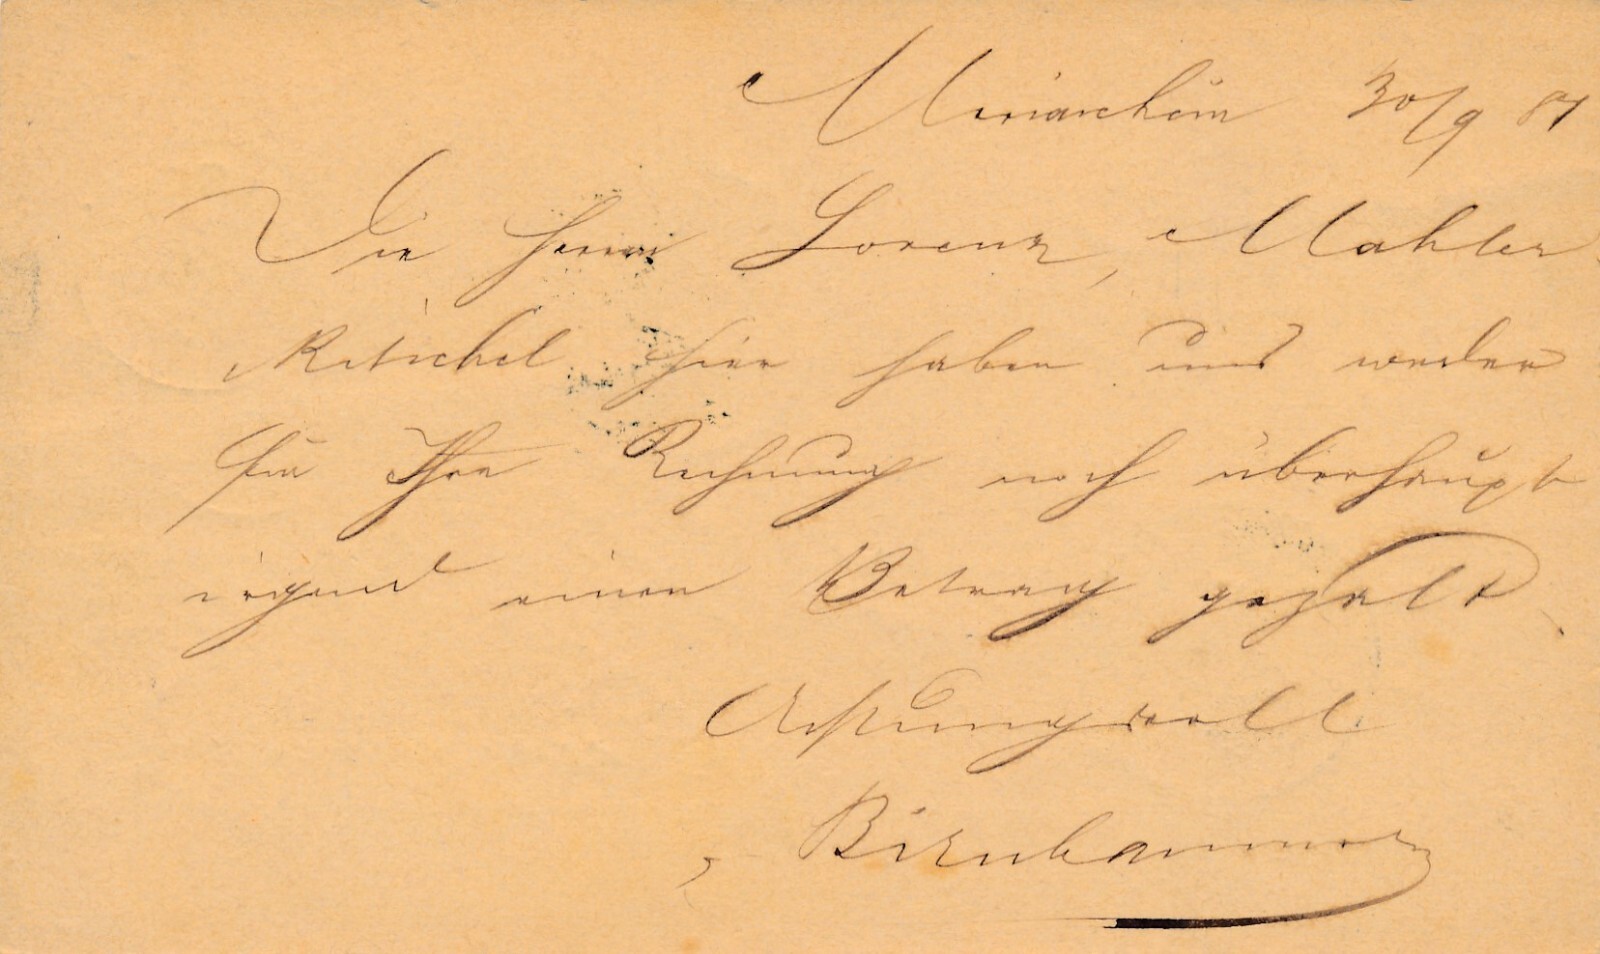 Mariaschein 30/9 87
Die Herren Lorenz, Mahler
Ritschel hier haben uns weder
für Ihre Rechnung noch überhaupt
irgend einen Betrag gezalt.
Achtungsvoll
Birnbaumer